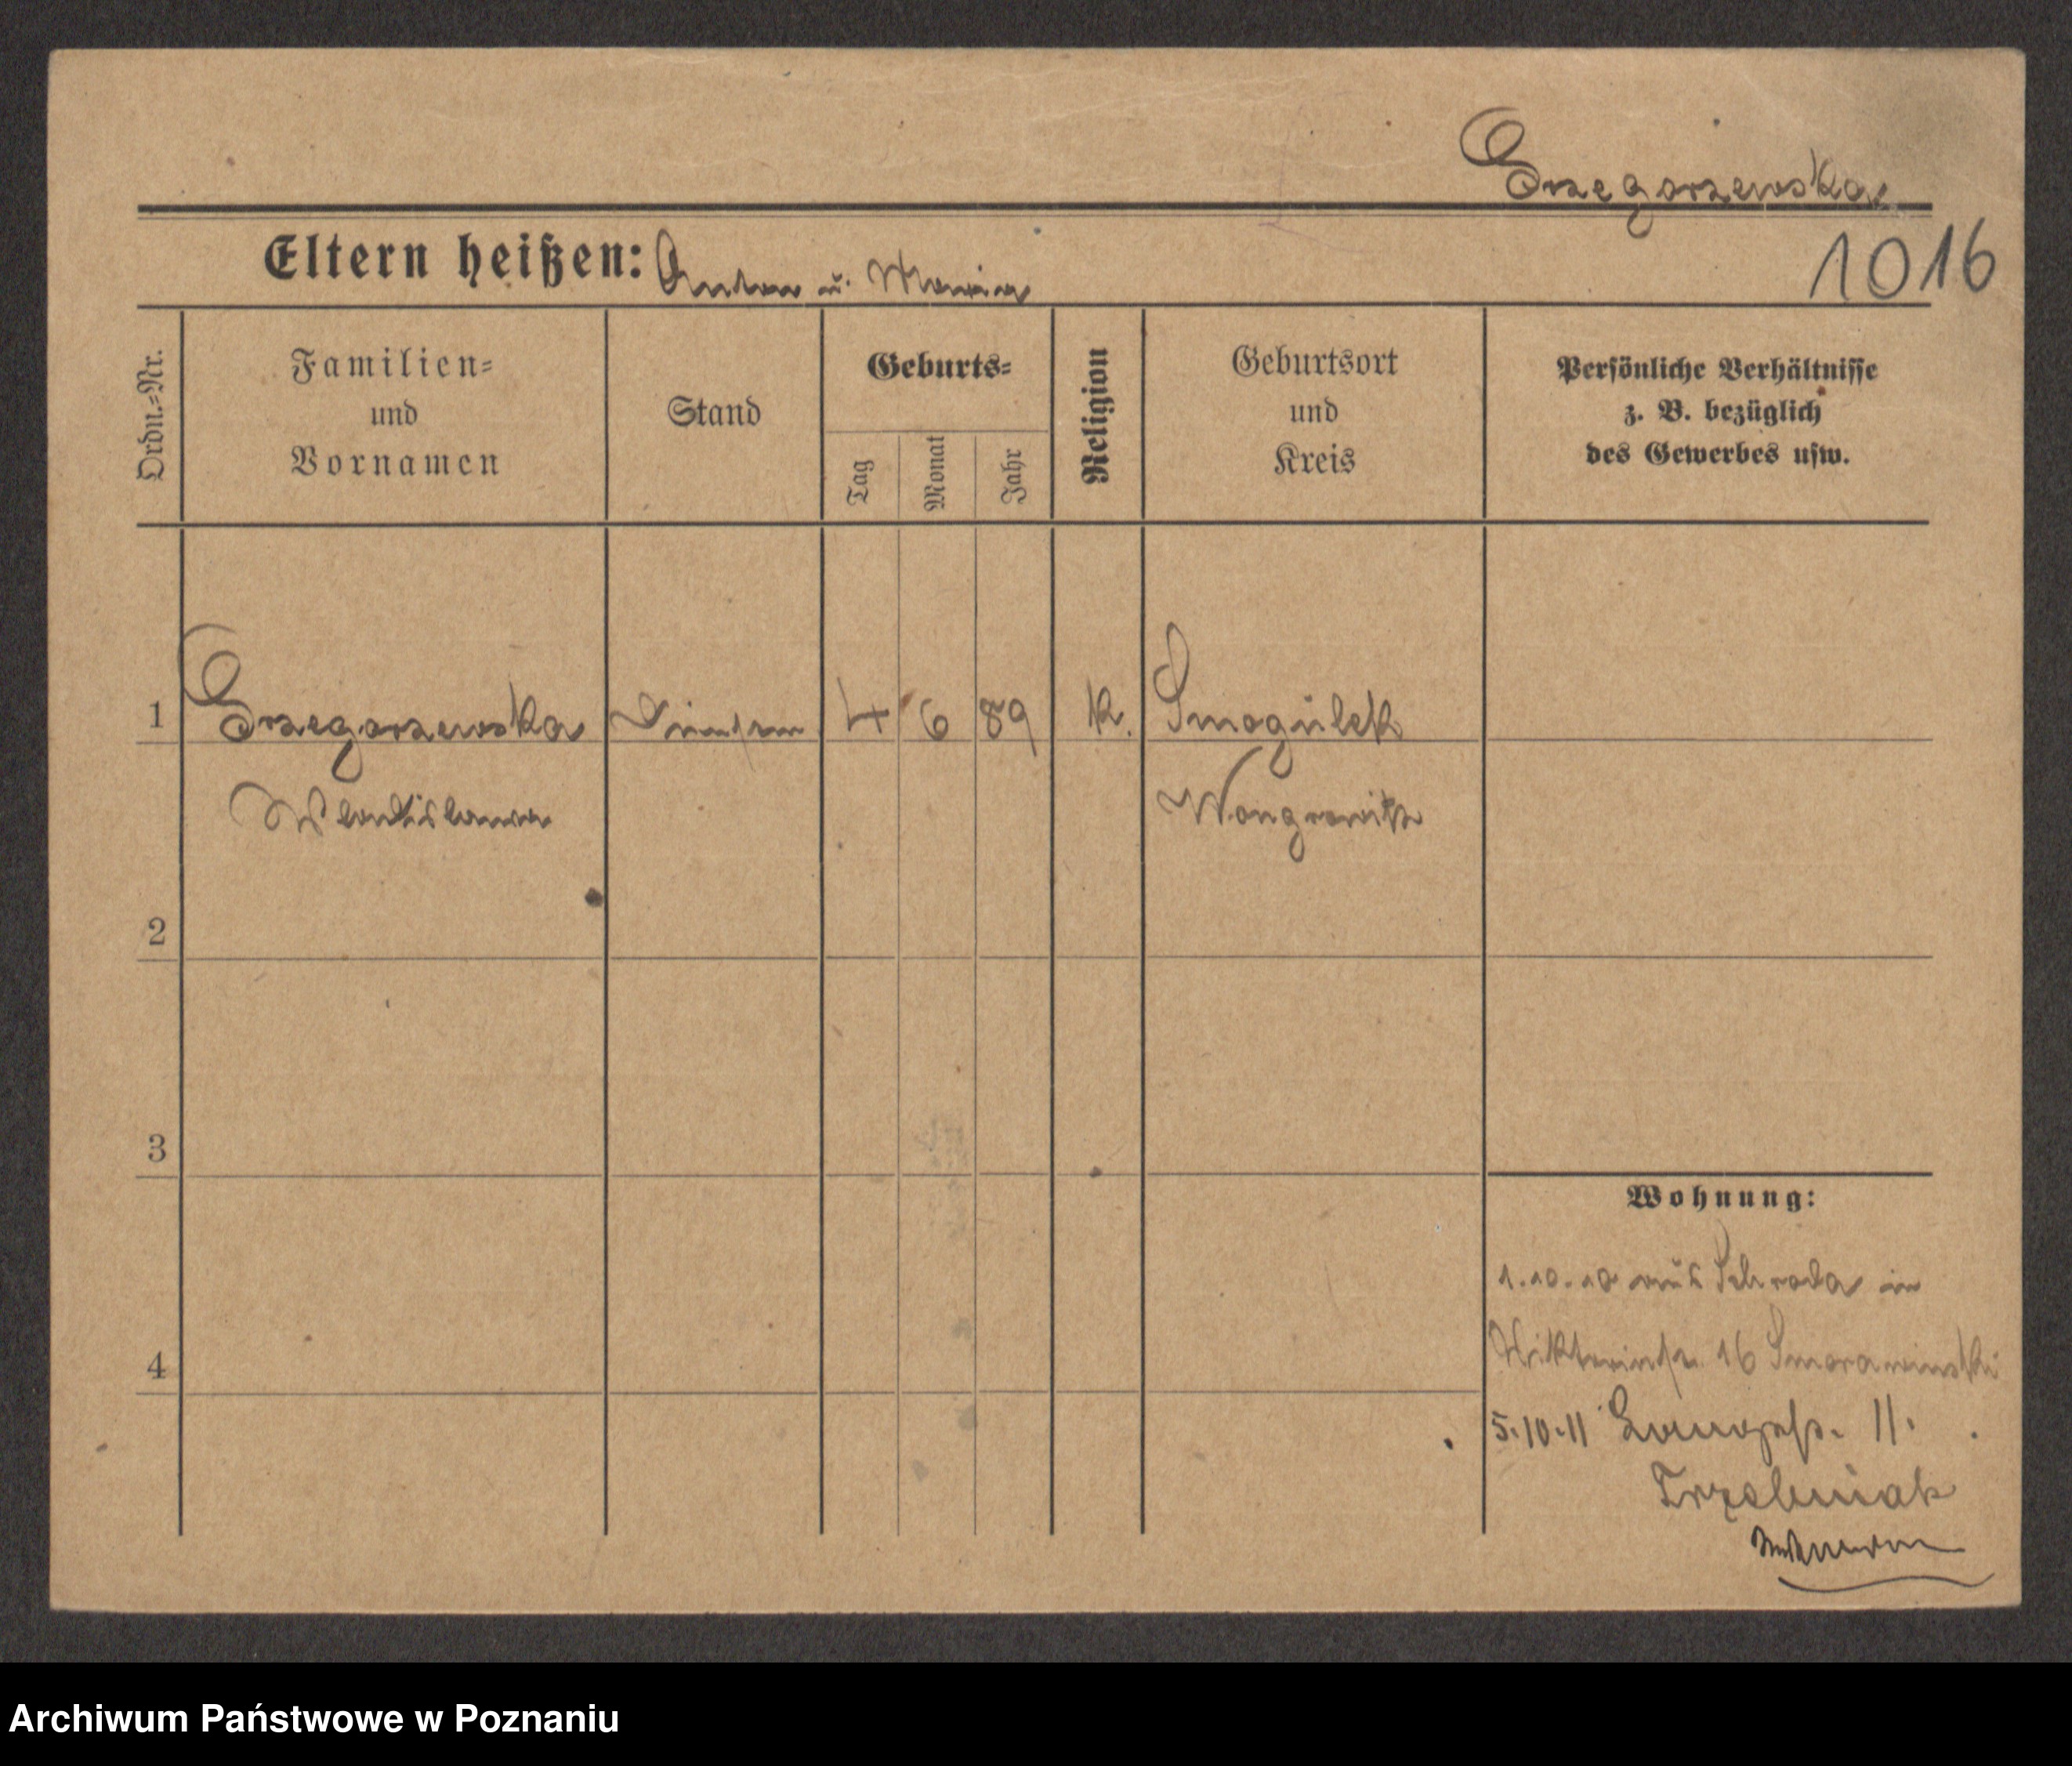 Grzegorzewska
Eltern heißen: Anton u. Maria
1016
Ordn.-Nr.
Familien-
und
Vornamen
Stand
Geburts-
Tag
Monat
Jahr
Religion
Geburtsort
und
Kreis
Persönliche Verhältnisse
z. B. bezüglich
des Gewerbes usw.
1 Grzegorzewska 4 6 89 k. Smogulek
Wladislawa Wongrowitz
2
3
Wohnung:
1.10.10 aus Schroda in
4
16 Smorawinski
5.10.11 11.
Trzebniak
Archiwum Państwowe w Poznaniu